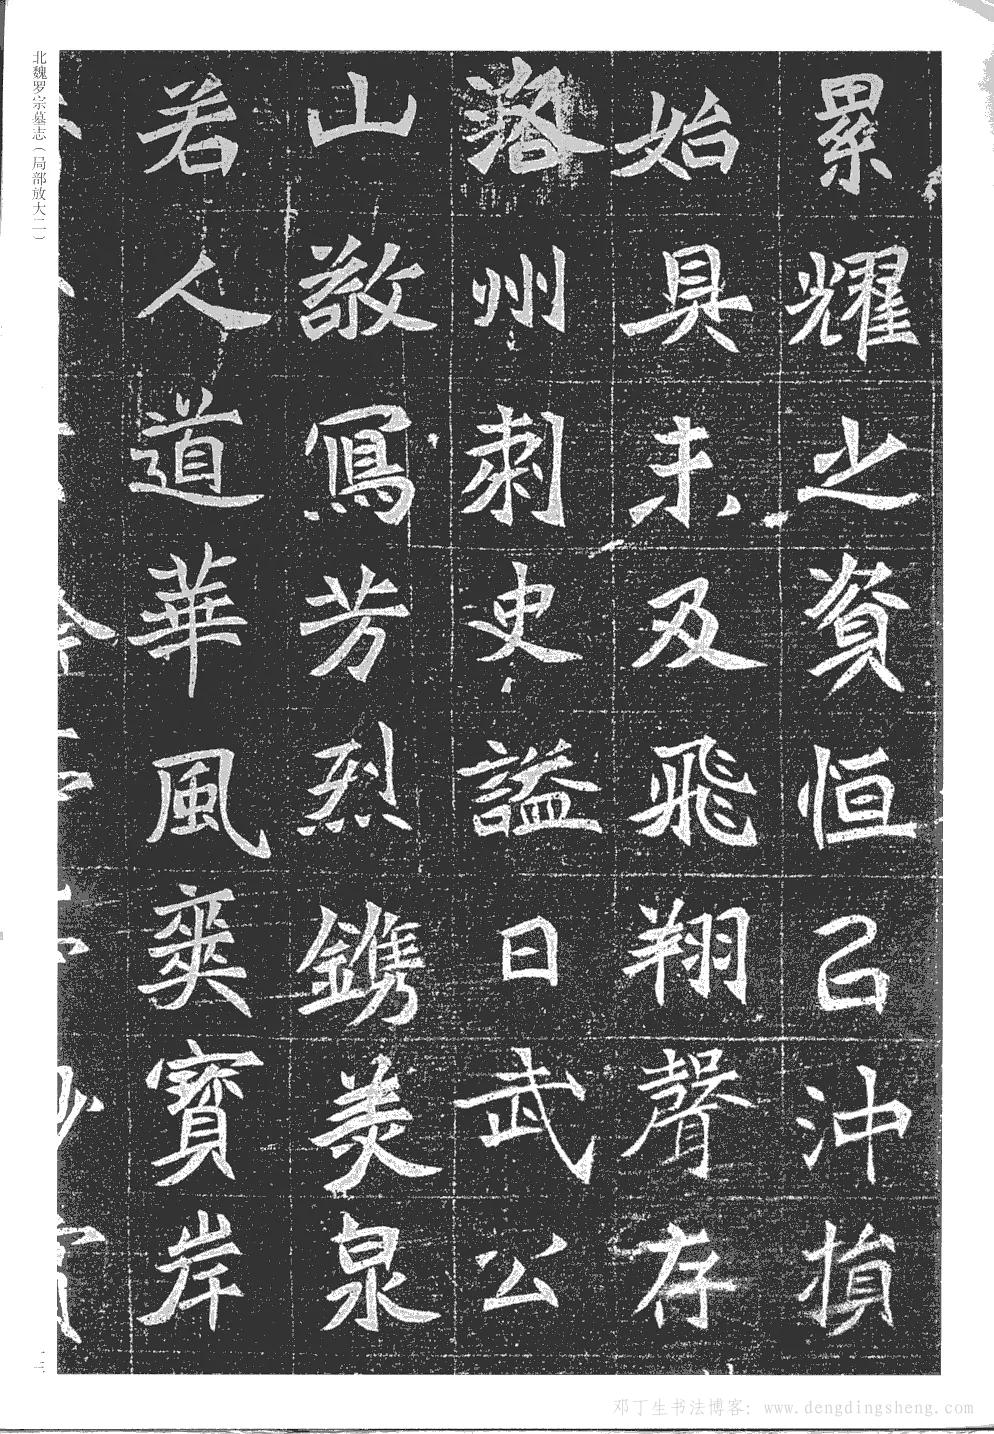 北魏罗宗墓志（局部放大二）
累耀之資恒己沖損
始具未及飛翔聲存
洛州刺史謚曰武公
山敬寫芳烈鐫美泉
若人道華風奕寶岸
邓丁生书法博客: www.dengdingsheng.com